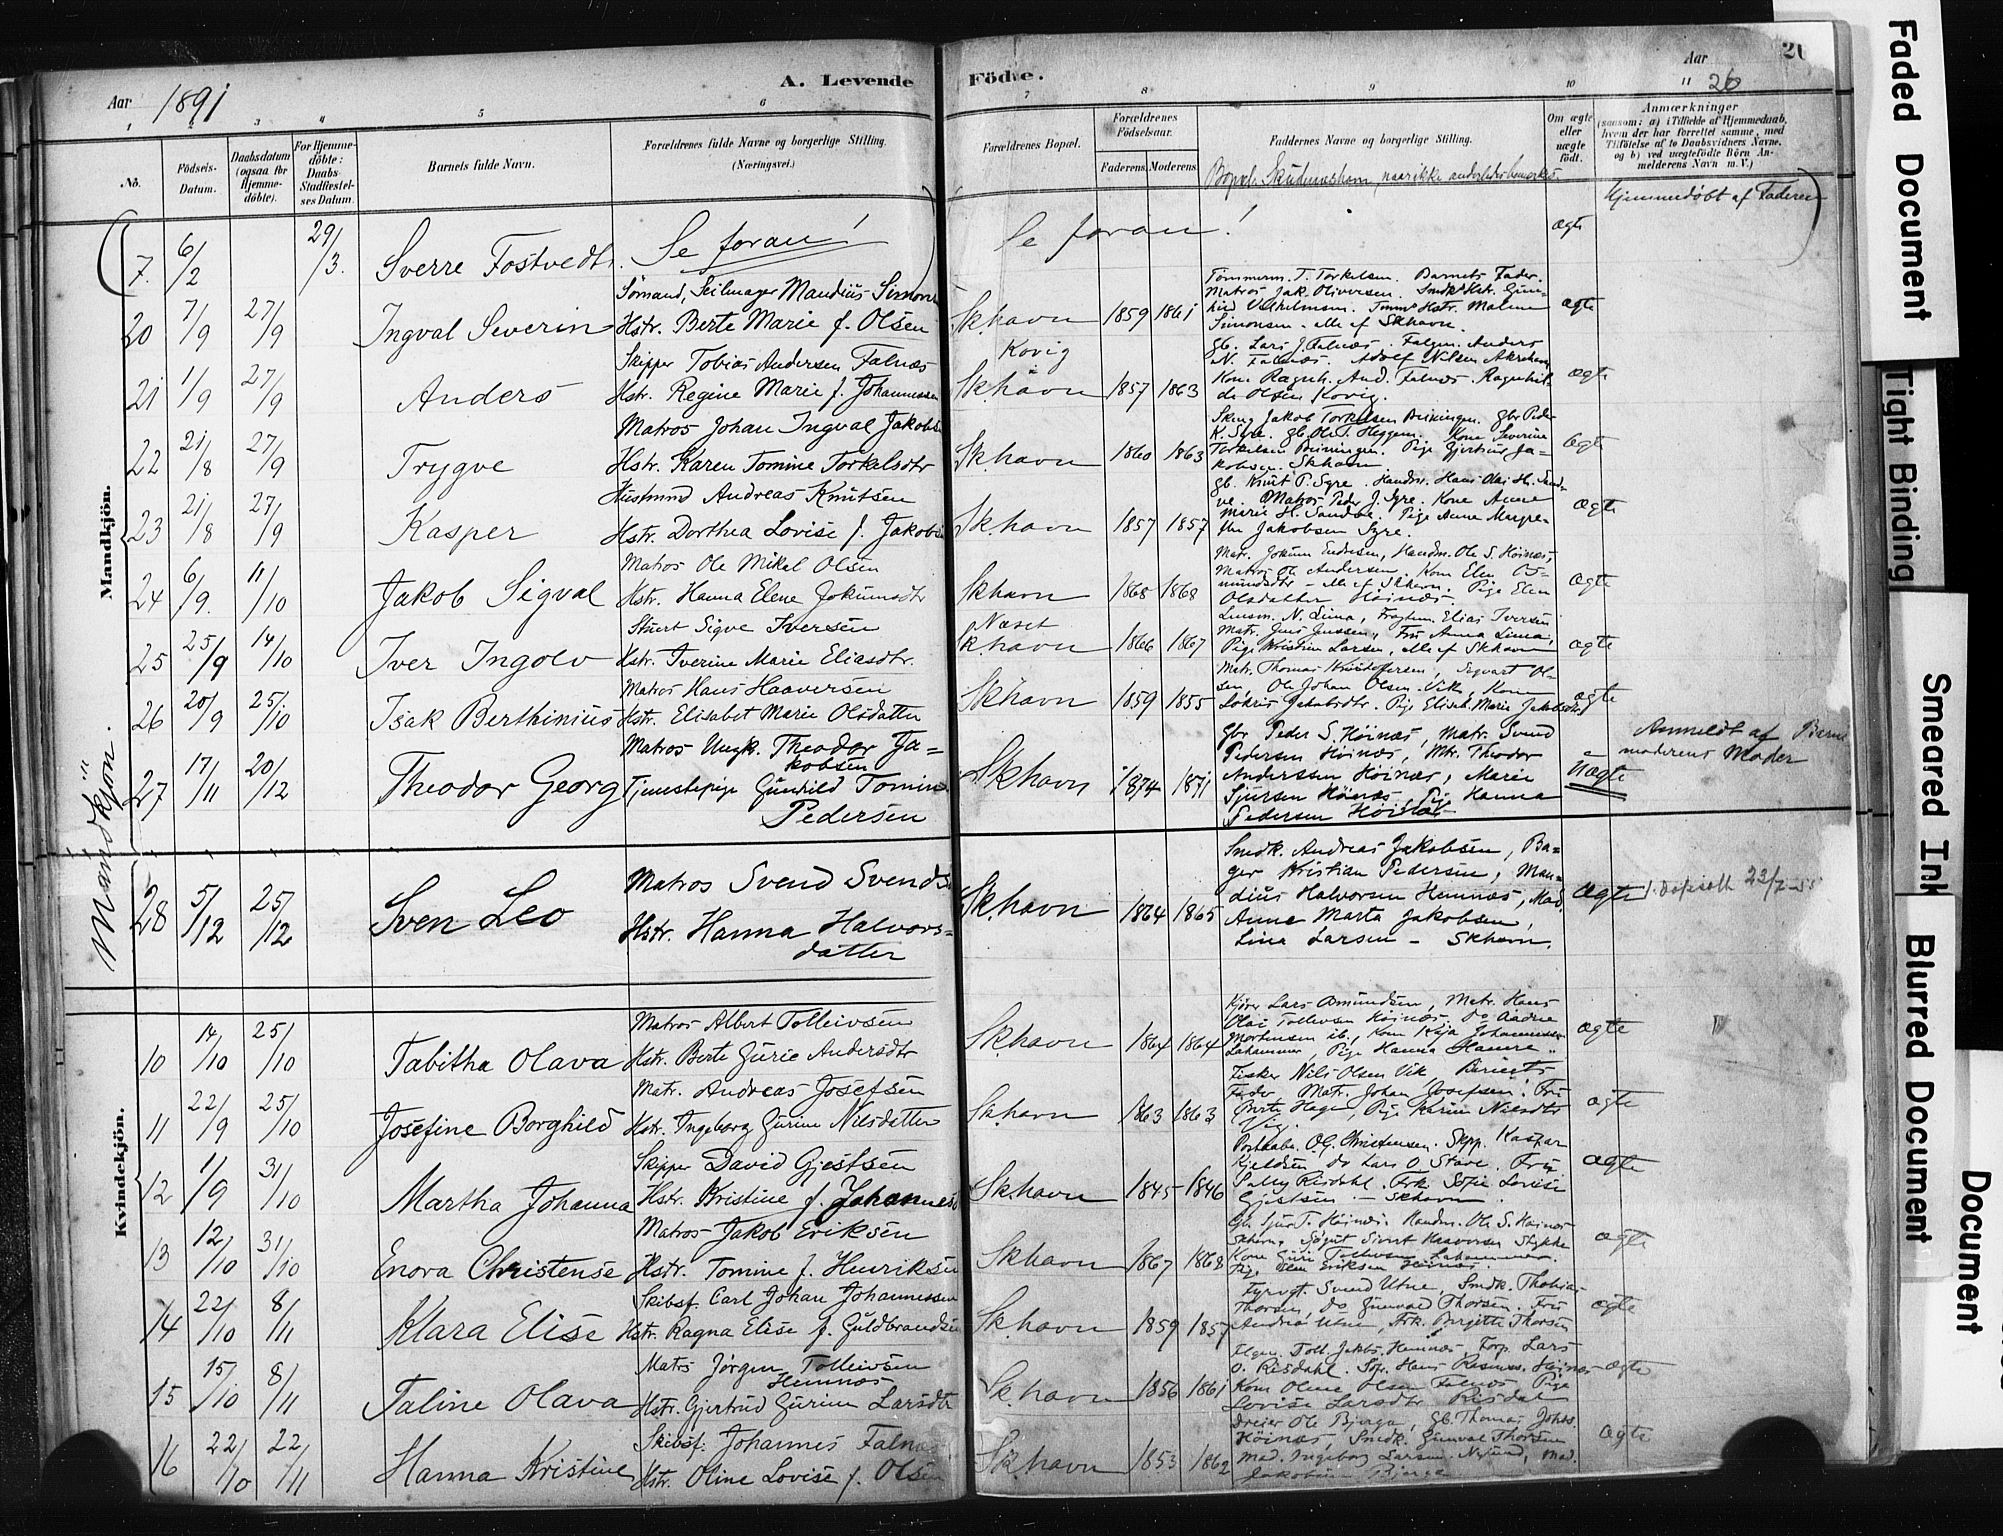 Aar 1891
A. Levende
Födte.
Aar
26
1 2 3 4 5 6 7 8 9 10 11
No.
Födsels-
Datum.
Daabsdatum
(ogsaa for
Hjemme-
döbte).
For Hjemme-
döbte:
Daabs-
Stadfæstel-
ses Datum.
Barnets fulde Navn.
Forældrenes fulde Navne og borgerlige Stilling.
(Næringsvei.)
Forældrenes Bopæl.
Forældrenes
Födselsaar.
Faderens. Moderens.
Faddernes Navne og borgerlige Stilling.
Bopæl Skudeneshavn, naar ikke anderledes bemærkes.
Om ægte
eller
uægte
födt.
Anmærkninger
(saasom: a) i Tilfælde af Hjemmedaab,
hvem der har forrettet samme, med
Tilföielse af to Daabsvidners Navne.
og b) ved uægtefödte Börn An-
melderens Navn m. V.)
Mandkjön.
7. 6/2 29/3. Sverre Fostvedt. Se foran! Se foran! ægte Hjemmedøbt af Faderen
20 7/9 27/9 Ingval Severin
Sømand, Seilmager Mandius Simons
Hstr. Berte Marie f. Olsen
Skhavn 1859 1861
Tømmerm. T. Torkelsen. Barnets Fader.
Matros Jak. Oliversen.
Simonsen - alle af Skhavn.
ægte
21 1/9 27/9 Anders
Skipper Tobias Andersen Falnæs
Hstr. Regine Marie f. Johannessen
Kovig
Skhavn 1857 1863
gb. Lars J. Falnæs. Anders
N. Falnæs. Adolf Nilsen
Kone Ragnh. And. Falnæs. Ragnhil-
de Olsen Kovig.
ægte
22 21/8 27/9 Trygve
Matros Johan Ingval Jakobsen
Hstr. Karen Tomine Torkelsdtr
Skhavn 1860 1863
Jakob Torkelsen
K. Syre. gb. Kone Severine
Torkelsen Pige Gjertine Ja-
kobsen. Skhavn
ægte
23 21/8 27/9 Kasper
Husmnd Andreas Knutsen
Hstr. Dorthea Lovise f. Jakobsen
Skhavn 1857 1857
gb. Knut P. Syre. Handm. Hans Olai H. Sand-
ve. Matros Peder J. Syre. Kone Anne
Marie H. Sandve. Pige Anne Margre-
the Jakobsen Syre.
ægte
24 6/9. 11/10 Jakob Sigval
Matros Ole Mikal Olsen
Hstr. Hanna Elene Jokumsdtr
Skhavn 1868 1868
Matr. Jokum Endresen, Handm. Ole S. Høinæs,
Matros Ole Andersen. Kone Elen Os-
mundsdtr - alle af Skhavn. Pige Elen
Olsdatter Høinæs
ægte
25 25/9 14/10 Iver Ingolv
Stuert Sigve Iversen
Hstr. Iverine Marie Eliasdtr.
Næset
Skhavn 1866 1867
Lensm. N. Lima, Elias Iversen
Matr. Jens Jenssen, Fru Anna Lima,
Pige Kristine Larsen, alle af Skhavn
ægte
26 20/9 25/10 Isak Berthinius
Matros Hans Haaversen
Hstr. Elisabet Marie Olsdatter
Skhavn 1859 1855
Matr. Thomas Kristoffersen, Sigvart Ol-
sen, Ole Johan Olsen Vik, Kone
Jakobsdtr. Pige Elisab. Marie Jakobsdtr
ægte
27 17/11 20/12 Theodor Georg
Matros Ungk. Theodor Ja-
kobsen
Tjenestepige Gunhild Tomine
Pedersen
Skhavn 1874 1871
gbr Peder S. Høinæs, Matr. Svend
Pedersen Høinæs, Mtr. Theodor
Anderssen Høinæs, Marie
Sjursen Høinæs Pig Hanna
Pedersen Høinæs
uægte
Anmeldt af Barne
moderens Moder
Mandkjön.
28 5/12 25/12 Sven Leo
Matros Svend Svends
Hstr. Hanna Halvors-
datter
Skhavn 1864 1865
Smdk. Andreas Jakobsen, Ba-
ger Kristian Pedersen, Man-
dius Halvorsen Hemnæs, Mad.
Anne Marta Jakobsen,
Lina Larsen - Skhavn.
ægte
23/7-55
Kvindekjön.
10 14/10 25/10 Tabitha Olava
Matros Albert Tolleivsen
Hstr. Berte Gurie Andersdtr
Skhavn 1864 1864
Kjører Lars Amundsen, Matr. Hans
Olai Tollevsen Høinæs. Do Aadne
Mortensen ib., Kone Kaja Johannessen
Lahammer, Pige Hanna
ægte
11 22/9 25/10 Josefine Borghild
Matr. Andreas Josefsen
Hstr. Ingeborg Gurine Nilsdatter
Skhavn 1863 1863
Fisker Nils Olsen Vik, Barnets
Fader, Matr. Johan Josefsen. Fru
Berte Hagen, Pige Karine Nilsdtr
Vig.
ægte
12 1/9 31/10 Martha Johanna
Skipper David Gjestsen
Hstr. Kristine f. Johannes
Skhavn 1845 1846
O.G. Christensen. Skpp. Kaspar
Kjeldsen do Lars O. Stave. Fru
Risdahl. Frk. Sofie Lovise
Gjestsen - Skhavn.
ægte
13 12/10 31/10 Enora Christense
Matros Jakob Eriksen
Hstr. Tomine f. Henriksen
Skhavn 1867 1868
Gb. Sjur T. Høinæs. Handm. Ole S. Høinæs
Kone Guri Tollevsen Lahammer
Pige Elen Eriksen Høinæs.
ægte
14 22/10 8/11 Klara Elise
Skibsf. Carl Johan Johannessen
Hstr. Ragna Elise f. Guldbrandsen
Skhavn 1859 1857
Fyrvgt. Svend Utne, Smdk. Thobias
Thorsen, Do Gunvald Thorsen. Fru
Andrea Utne, Frk. Birgitte Thorsen
ægte
15 15/10 8/11 Taline Olava
Matrs Jørgen Tolleivsen
Hemnæs
Hstr. Gjertrud Gurine Larsdtr
Skhavn 1856 1861
Toll. Jakobs. Hemnæs, Lars
O. Risdahl. Hans Rasmus. Høinæs
Kone Olene Olsen Falnæs Pige
Lovise Larsdtr Risdal
ægte
16 22/10 22/11 Hanna Kristine
Skibsf. Johannes Falnæs
Hstr. Oline Lovise f. Olsen
Skhavn 1853 1862
Dreier Ole Bjerga, Gb. Thomas Johs.
Høinæs, Smdk. Gunval Thorsen
Mad. Ingeborg Larsen Nylund, Mad.
Jakobine Bjerga
ægte
Faded Document
Tight Binding
Smeared Ink
Blurred Document
Document